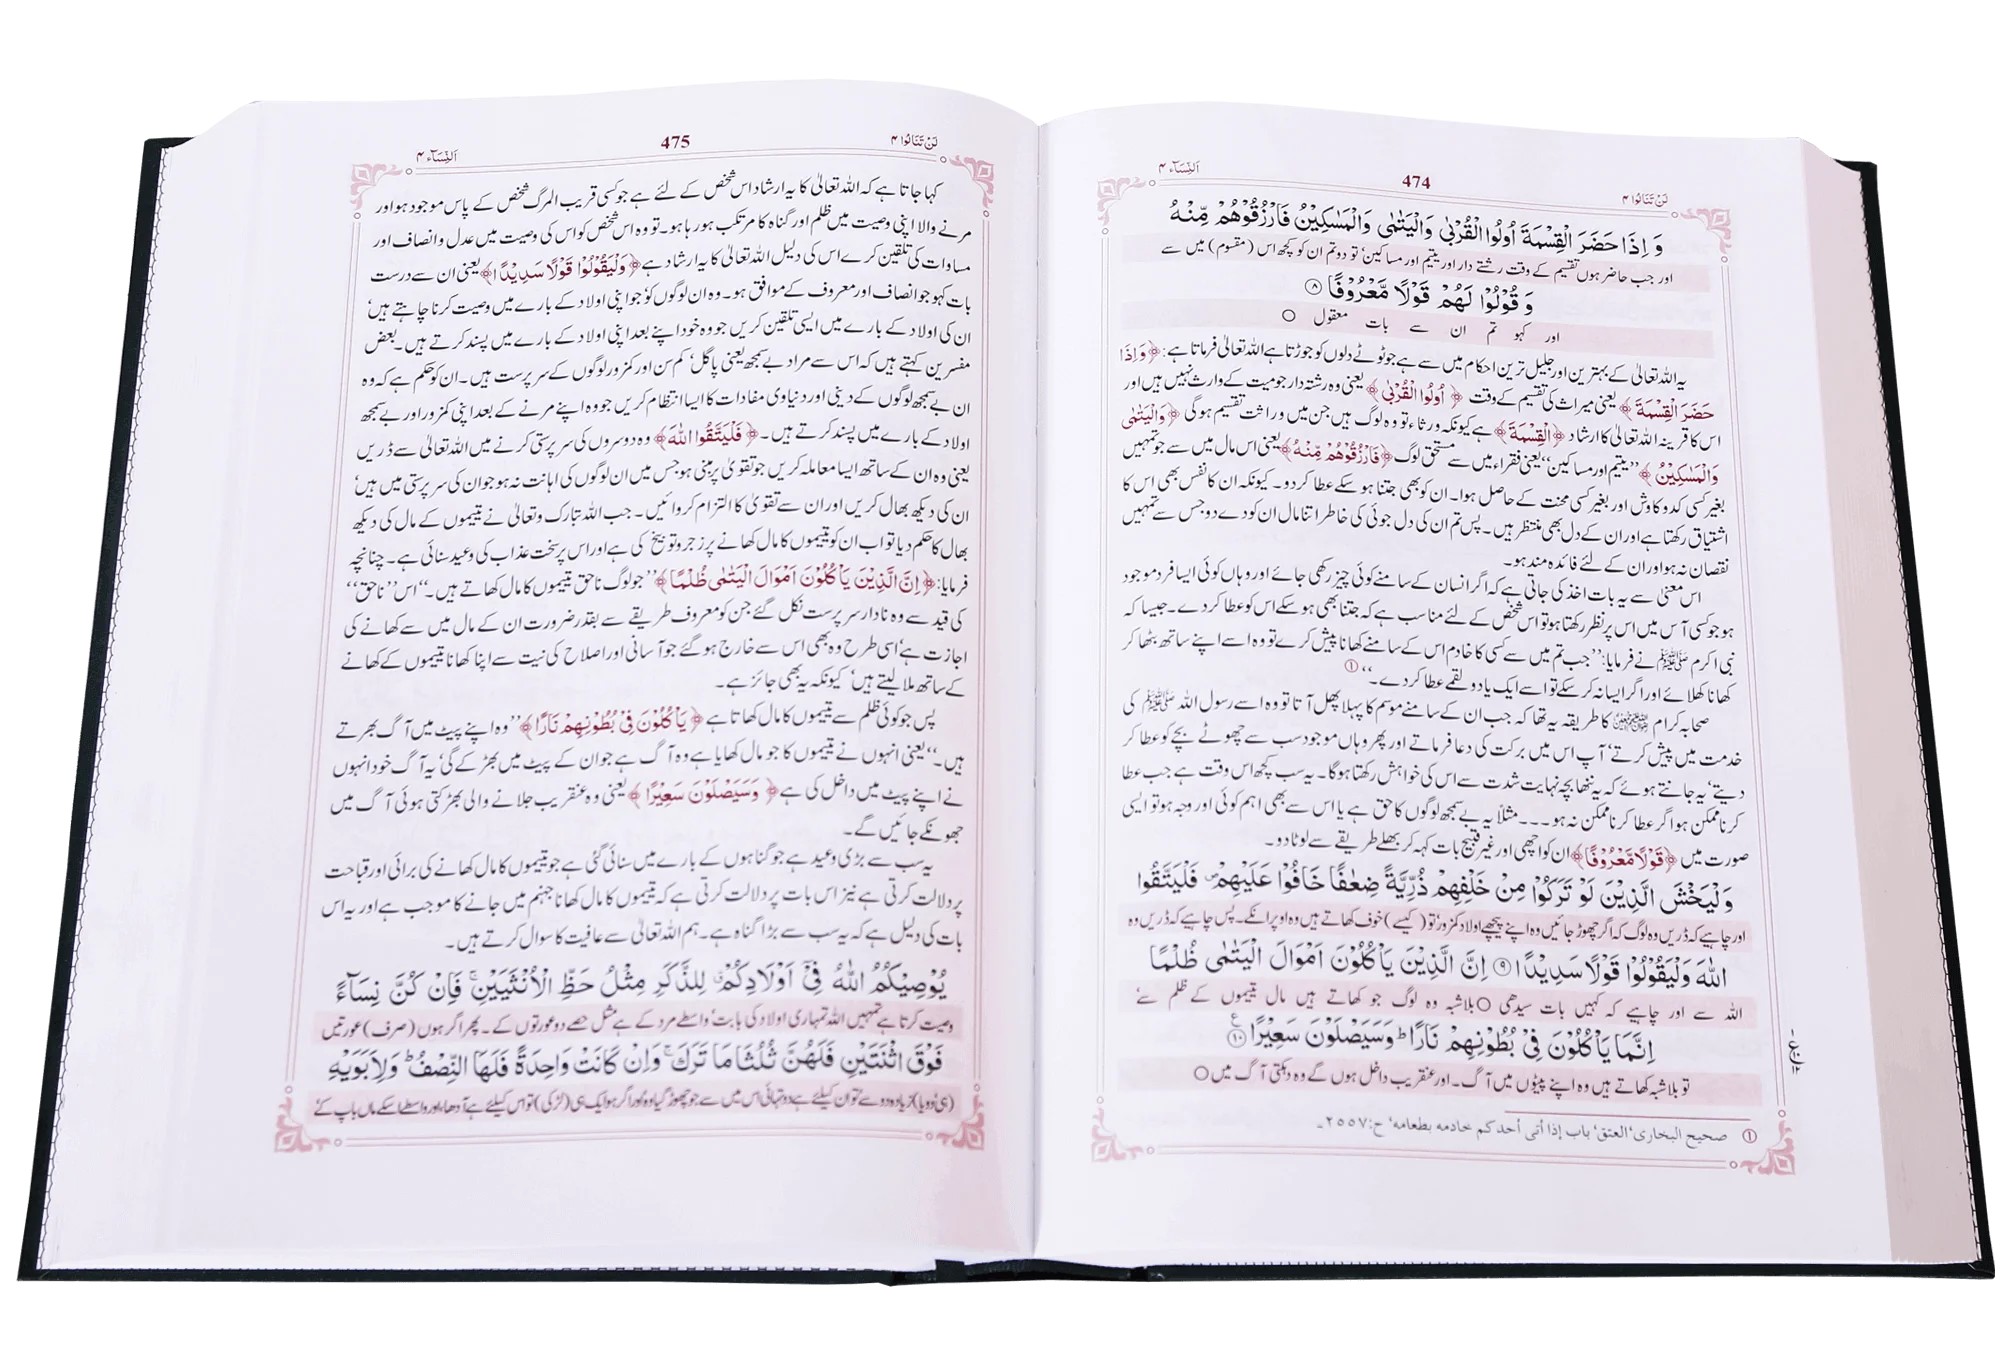 لَنْ تَنَالُوا ۴
474
اَلنِّسَآء ۴
وَ اِذَا حَضَرَ الْقِسْمَةَ اُولُوا الْقُرْبٰی وَالْیَتٰمٰی وَالْمَسٰکِیْنُ فَارْزُقُوْهُمْ مِّنْهُ
اور جب حاضر ہوں تقسیم کے وقت رشتے دار اور یتیم اور مساکین، تو دو تم ان کو کچھ اس (مقسوم) میں سے
وَ قُوْلُوْا لَهُمْ قَوْلًا مَّعْرُوْفًا ۸
اور کہو تم ان سے بات معقول ○
یہ اللہ تعالیٰ کے بہترین اور جلیل ترین احکام میں سے ہے جو ٹوٹے دلوں کو جوڑتا ہے اللہ تعالیٰ فرماتا ہے: ﴿وَاِذَا
حَضَرَ الْقِسْمَةَ﴾ یعنی میراث کی تقسیم کے وقت ﴿اُولُوا الْقُرْبٰی﴾ یعنی وہ رشتہ دار جو میت کے وارث نہیں ہیں اور
اس کا قرینہ اللہ تعالیٰ کا ارشاد ﴿اَلْقِسْمَةَ﴾ ہے کیونکہ ورثاء تو وہ لوگ ہیں جن میں وراثت تقسیم ہوگی ﴿وَالْیَتٰمٰی
وَالْمَسٰکِیْنُ﴾ ’’یتیم اور مساکین‘‘ یعنی فقراء میں سے مستحق لوگ ﴿فَارْزُقُوْهُمْ مِّنْهُ﴾ یعنی اس مال میں سے جو تمہیں
بغیر کسی کد و کاوش اور بغیر کسی محنت کے حاصل ہوا۔ ان کو بھی جتنا ہو سکے عطا کر دو۔ کیونکہ ان کا نفس بھی اس کا
اشتیاق رکھتا ہے اور ان کے دل بھی منتظر ہیں۔ پس تم ان کی دل جوئی کی خاطر اتنا مال ان کو دے دو جس سے تمہیں
نقصان نہ ہو اور ان کے لئے فائدہ مند ہو۔
اس معنیٰ سے یہ بات اخذ کی جاتی ہے کہ اگر انسان کے سامنے کوئی چیز رکھی جائے اور وہاں کوئی ایسا فرد موجود
ہو جو کسی آس میں اس پر نظر رکھتا ہو تو اس شخص کے لئے مناسب ہے کہ جتنا بھی ہو سکے اس کو عطا کر دے۔ جیسا کہ
نبی اکرم ﷺ نے فرمایا: ’’جب تم میں سے کسی کا خادم اس کے سامنے کھانا پیش کرے تو وہ اسے اپنے ساتھ بٹھا کر
کھانا کھلائے اور اگر ایسا نہ کر سکے تو اسے ایک یا دو لقمے عطا کر دے۔‘‘ ①
صحابہ کرام کا طریقہ یہ تھا کہ جب ان کے سامنے موسم کا پہلا پھل آتا تو وہ اسے رسول اللہ ﷺ کی
خدمت میں پیش کرتے، آپ اس میں برکت کی دعا فرماتے اور پھر وہاں موجود سب سے چھوٹے بچے کو عطا کر
دیتے، یہ جانتے ہوئے کہ یہ ننھا بچہ نہایت شدت سے اس کی خواہش رکھتا ہوگا۔ یہ سب کچھ اس وقت ہے جب عطا
کرنا ممکن ہو اگر عطا کرنا ممکن نہ ہو۔۔۔ مثلاً یہ بے سمجھ لوگوں کا حق ہے یا اس سے بھی اہم کوئی اور وجہ ہو تو ایسی
صورت میں ﴿قَوْلًا مَّعْرُوْفًا﴾ ان کو اچھی اور غیر قبیح بات کہہ کر بھلے طریقے سے لوٹا دو۔
وَلْیَخْشَ الَّذِیْنَ لَوْ تَرَکُوْا مِنْ خَلْفِهِمْ ذُرِّیَّةً ضِعٰفًا خَافُوْا عَلَیْهِمْ فَلْیَتَّقُوا
اور چاہیے کہ ڈریں وہ لوگ کہ اگر چھوڑ جائیں وہ اپنے پیچھے اولاد کمزور، تو (کیسے) خوف کھاتے ہیں وہ اوپر انکے۔ پس چاہیے کہ ڈریں وہ
اللّٰهَ وَلْیَقُوْلُوْا قَوْلًا سَدِیْدًا ۹ اِنَّ الَّذِیْنَ یَاْکُلُوْنَ اَمْوَالَ الْیَتٰمٰی ظُلْمًا
اللہ سے اور چاہیے کہ کہیں بات سیدھی ○ بلاشبہ وہ لوگ جو کھاتے ہیں مال یتیموں کے ظلم سے،
اِنَّمَا یَاْکُلُوْنَ فِیْ بُطُوْنِهِمْ نَارًا وَسَیَصْلَوْنَ سَعِیْرًا ۱۰
تو بلاشبہ کھاتے ہیں وہ اپنے پیٹوں میں آگ۔ اور عنقریب داخل ہوں گے وہ دہکتی آگ میں ○
① صحیح البخاری، العتق، باب إذا أتی أحدکم خادمه بطعامه، ح:۲۵۵۷۔
لَنْ تَنَالُوا ۴
475
اَلنِّسَآء ۴
کہا جاتا ہے کہ اللہ تعالیٰ کا یہ ارشاد اس شخص کے لئے ہے جو کسی قریب المرگ شخص کے پاس موجود ہو اور
مرنے والا اپنی وصیت میں ظلم اور گناہ کا مرتکب ہو رہا ہو۔ تو وہ اس شخص کو اس کی وصیت میں عدل و انصاف اور
مساوات کی تلقین کرے اس کی دلیل اللہ تعالیٰ کا یہ ارشاد ہے ﴿وَلْیَقُوْلُوْا قَوْلًا سَدِیْدًا﴾ یعنی ان سے درست
بات کہو جو انصاف اور معروف کے موافق ہو۔ وہ ان لوگوں کو، جو اپنی اولاد کے بارے میں وصیت کرنا چاہتے ہیں،
ان کی اولاد کے بارے میں ایسی تلقین کریں جو وہ خود اپنے بعد اپنی اولاد کے بارے میں پسند کرتے ہیں۔ بعض
مفسرین کہتے ہیں کہ اس سے مراد بے سمجھ یعنی پاگل، کم سن اور کمزور لوگوں کے سرپرست ہیں۔ ان کو حکم ہے کہ وہ
ان بے سمجھ لوگوں کے دینی اور دنیاوی مفادات کا ایسا انتظام کریں جو وہ اپنے مرنے کے بعد اپنی کمزور اور بے سمجھ
اولاد کے بارے میں پسند کرتے ہیں۔ ﴿فَلْیَتَّقُوا اللّٰهَ﴾ وہ دوسروں کی سرپرستی کرنے میں اللہ تعالیٰ سے ڈریں
یعنی وہ ان کے ساتھ ایسا معاملہ کریں جو تقویٰ پر مبنی ہو جس میں ان لوگوں کی اہانت نہ ہو جو ان کی سرپرستی میں ہیں،
ان کی دیکھ بھال کریں اور ان سے تقویٰ کا التزام کروائیں۔ جب اللہ تبارک و تعالیٰ نے یتیموں کے مال کی دیکھ
بھال کا حکم دیا تو اب ان کو یتیموں کا مال کھانے پر زجر و توبیخ کی ہے اور اس پر سخت عذاب کی وعید سنائی ہے۔ چنانچہ
فرمایا: ﴿اِنَّ الَّذِیْنَ یَاْکُلُوْنَ اَمْوَالَ الْیَتٰمٰی ظُلْمًا﴾ ’’جو لوگ ناحق یتیموں کا مال کھاتے ہیں۔‘‘ اس ’’ناحق‘‘
کی قید سے وہ نادار سرپرست نکل گئے جن کو معروف طریقے سے بقدر ضرورت ان کے مال میں سے کھانے کی
اجازت ہے، اسی طرح وہ بھی اس سے خارج ہو گئے جو آسانی اور اصلاح کی نیت سے اپنا کھانا یتیموں کے کھانے
کے ساتھ ملا لیتے ہیں، کیونکہ یہ بھی جائز ہے۔
پس جو کوئی ظلم سے یتیموں کا مال کھاتا ہے ﴿یَاْکُلُوْنَ فِیْ بُطُوْنِهِمْ نَارًا﴾ ’’وہ اپنے پیٹ میں آگ بھرتے
ہیں۔‘‘ یعنی انہوں نے یتیموں کا جو مال کھایا ہے وہ آگ ہے جو ان کے پیٹ میں بھڑکے گی، یہ آگ خود انہوں
نے اپنے پیٹ میں داخل کی ہے ﴿وَسَیَصْلَوْنَ سَعِیْرًا﴾ یعنی وہ عنقریب جلانے والی بھڑکتی ہوئی آگ میں
جھونکے جائیں گے۔
یہ سب سے بڑی وعید ہے جو گناہوں کے بارے میں سنائی گئی ہے جو یتیموں کا مال کھانے کی برائی اور قباحت
پر دلالت کرتی ہے نیز اس بات پر دلالت کرتی ہے کہ یتیموں کا مال کھانا جہنم میں جانے کا موجب ہے اور یہ اس
بات کی دلیل ہے کہ یہ سب سے بڑا گناہ ہے۔ ہم اللہ تعالیٰ سے عافیت کا سوال کرتے ہیں۔
یُوْصِیْکُمُ اللّٰهُ فِیْۤ اَوْلَادِکُمْ لِلذَّکَرِ مِثْلُ حَظِّ الْاُنْثَیَیْنِ فَاِنْ کُنَّ نِسَآءً
وصیت کرتا ہے تمہیں اللہ تمہاری اولاد کی بابت، واسطے مرد کے ہے مثل حصے دو عورتوں کے۔ پھر اگر ہوں (صرف) عورتیں
فَوْقَ اثْنَتَیْنِ فَلَهُنَّ ثُلُثَا مَا تَرَکَ وَاِنْ کَانَتْ وَاحِدَةً فَلَهَا النِّصْفُ وَلِاَبَوَیْهِ
(ہی دو یا) زیادہ دو سے تو ان کیلئے ہے دو تہائی اس میں سے جو چھوڑ گیا وہ، اور اگر ہو ایک ہی (لڑکی) تو اس کیلئے ہے آدھا، اور واسطے اسکے ماں باپ کے